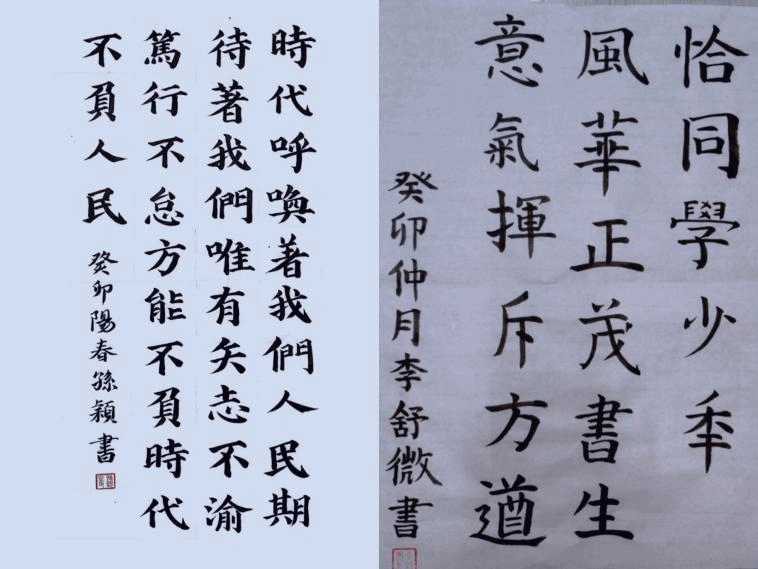 時代呼喚著我們人民期
待著我們唯有矢志不渝
篤行不怠方能不負時代
不負人民
癸卯陽春孫穎書
恰同學少年
風華正茂書生
意氣揮斥方遒
癸卯仲月李舒微書